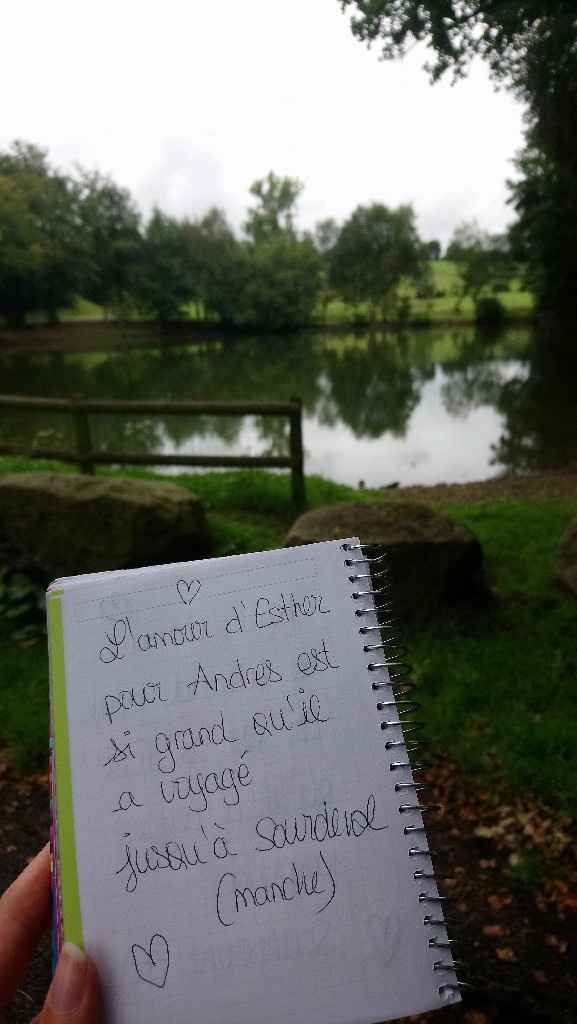 L'amour d'Esther
pour Andres est
si grand qu'il
a voyagé
jusqu'à Sourdeval
(manche)